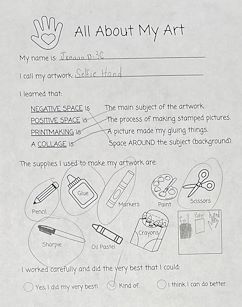 All About My Art
My name is
I call my artwork Selfie Hand
I learned that:
NEGATIVE SPACE is The main subject of the artwork.
POSITIVE SPACE is The process of making stamped pictures.
PRINTMAKING is A picture made my gluing things.
A COLLAGE is Space AROUND the subject (background).
The supplies I used to make my artwork are:
Pencil
Glue
Markers
Paint
Scissors
Sharpie
Oil Pastel
Crayons
I worked carefully and did the very best that I could:
Yes, I did my very best! Kind of. I think I can do better.